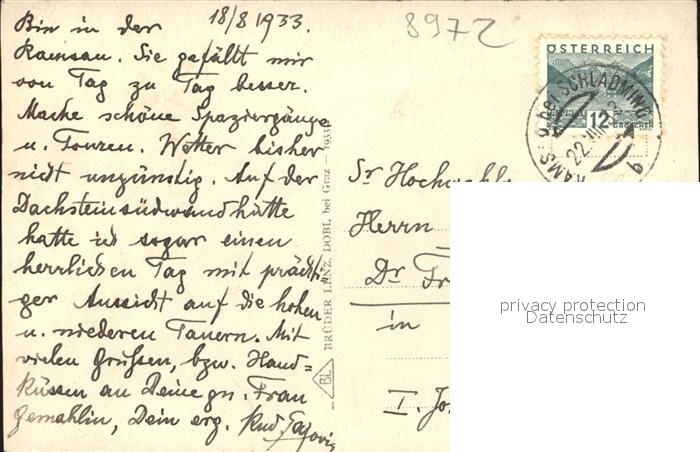 18/8 1933.
Bin in der
Ramsau. Sie gefällt mir
von Tag zu Tag besser.
Mache schöne Spaziergänge
u. Touren. Wetter bisher
nicht ungünstig. Auf der
Dachsteinsüdwandhütte
hatte ich sogar einen
herrlichen Tag mit prächti-
ger Aussicht auf die hohen
u. niederen Tauern. Mit
vielen Grüßen, bzw. Hand=
küssen an Deine gn. Frau
Gemahlin, Dein erg.
BRÜDER LENZ, DOBL bei Graz — 1933
BL
8972
ÖSTERREICH
12
GROSCHEN
RAMSAU bei SCHLADMING
22. VIII. 33
Sr Hochwohl
Herrn
Dr Fr
in
I. Jo
privacy protection
Datenschutz